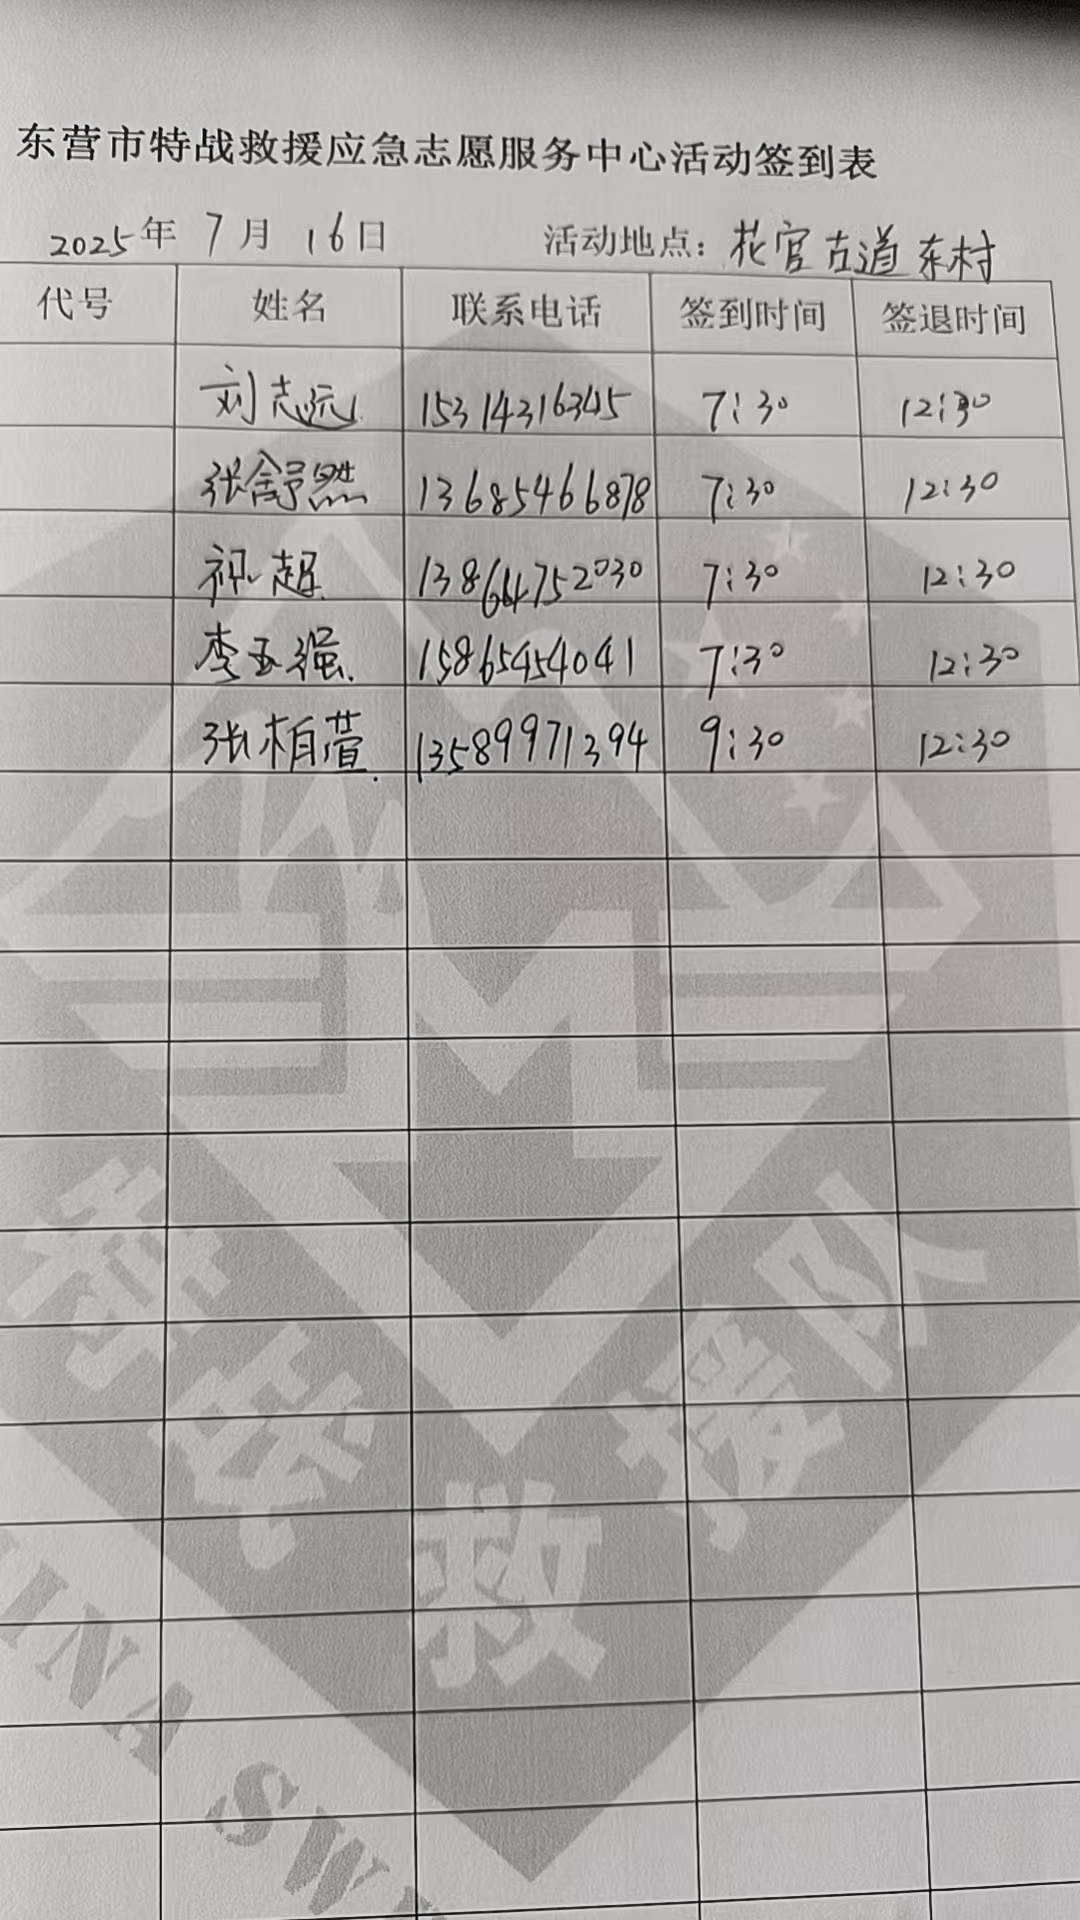 东营市特战救援应急志愿服务中心活动签到表
2025年 7月 16日 活动地点：花官古道东村
代号 姓名 联系电话 签到时间 签退时间
刘志远 15314316345 7:30 12:30
张舒然 13685466878 7:30 12:30
祝超 13864752030 7:30 12:30
李玉强 15865454041 7:30 12:30
张柏萱 13589971394 9:30 12:30
特战救援队
INA SW